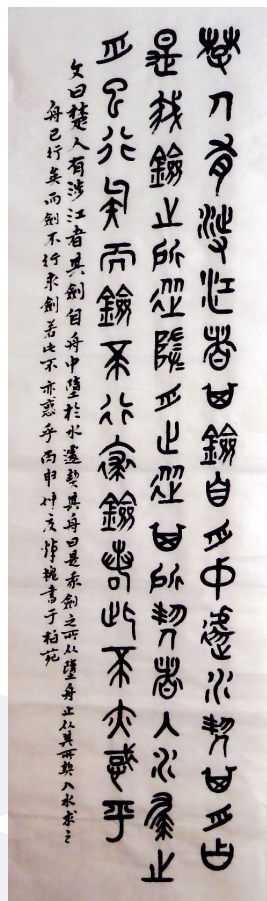 楚人有涉江者其鐱自舟中遽水契其舟曰
是我鐱之所從墜舟止從其所契者入水求之
舟已行矣而鐱不行求鐱若此不亦惑乎
文曰楚人有涉江者其劍自舟中墮於水遽契其舟曰是我劍之所从墮舟止从其所契入水求之
舟已行矣而劍不行求劍若此不亦惑乎丙申仲書于柏苑